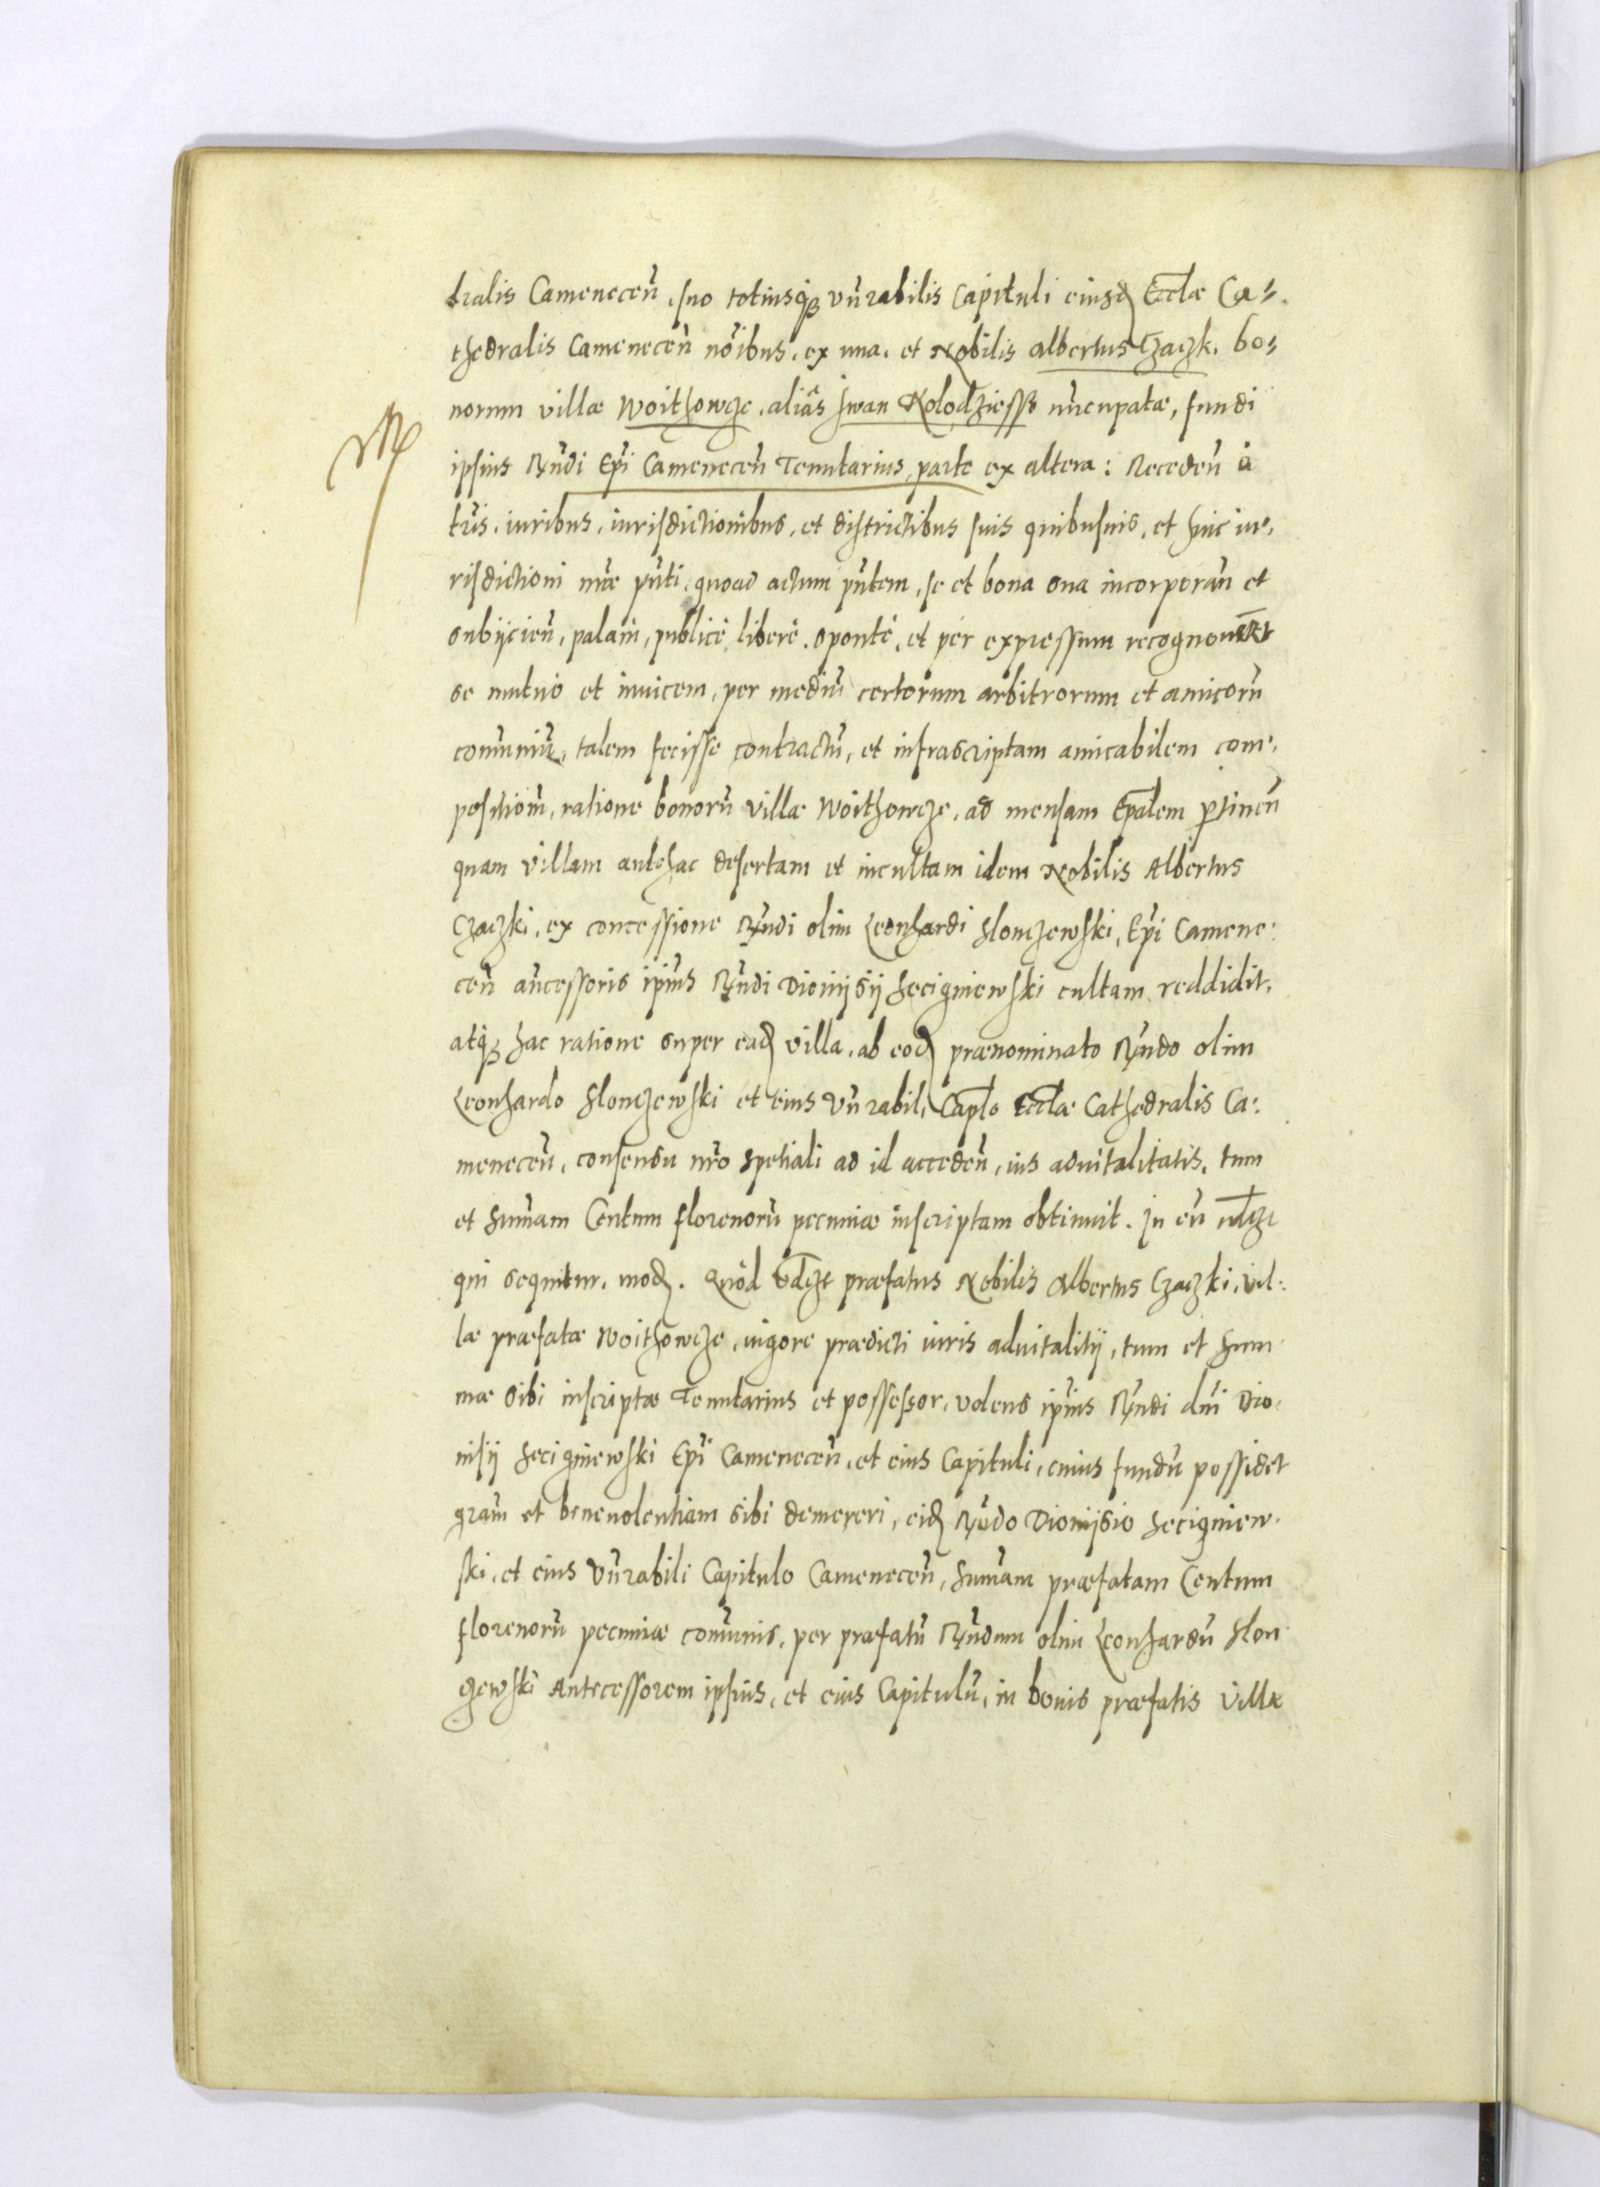 tralis Camenecen̄, suo totiusq̢ vn̄rabilis Capituli eiusd Eccłæ Ca-
thedralis Camenecen̄ nōibus, ex una, et Nobilis Albertus Czaczk. bo-
norum villæ Woithowcze, aliâs Iwan Kolodziesse nūcupatæ, fundi
ipsius Rn̄di Ep̄i Camenecen̄ Tenutarius, parte ex altera: Receden̄ à
tr̄is, iuribus, iurisdictionibus, et districtibus suis quibusuis, et huic iu-
risdictioni nr̄æ pn̄ti, quoad actum pn̄tem, se et bona sua incorporan̄ et
subijcien̄, palàm, publicè, liberè, spontè, et per expressum recognouer̄t
se mutuo et inuicem, per mediū certorum arbitrorum et amicorū
com̄uniū, talem fecisse contractū, et infrascriptam amicabilem com-
positiom̄, ratione bonorū villæ Woithowcze, ad mensam Ep̄alem ptinen̄
quam villam antehac desertam et incultam idem Nobilis Albertus
Czaczki, ex concessione Rn̄di olim Leonhardi Slonczewski, Ep̄i Camene-
cen̄ an̄cessoris ip̄ius Rn̄di Dionijsij Secigniewski cultam reddidit,
atq̢ hac ratione super ead villa, ab eod prænominato Rn̄do olim
Leonhardo Slonczewski et eius Vn̄rabil, Capło Eccłæ Cathedralis Ca-
menecen̄, consensu nr̄o spetiali ad id acceden̄, ius aduitalitatis, tum
et Sum̄am Centum florenorū pecuniæ inscriptam obtinuit. In eū
qui sequitur, mod. Quòd præfatus Nobilis Albertus Czaczki, vil-
læ præfatæ Woithowcze, vigore prædicti iuris aduitalitij, tum et Sum-
mæ sibi inscriptæ Tenutarius et possessor, volens ip̄ius Rn̄di dn̄i Dio-
nisij Secigniewski Ep̄i Camenecen̄, et eius Capituli, cuius fundū possidet
gram̄ et beneuolentiam sibi demereri, eid Rn̄do Dionijsio Secigniew-
ski, et eius Vn̄rabili Capitulo Camenecen̄, Sum̄am præfatam Centum
florenorū pecuniæ com̄unis, per præfatū Rn̄dum olim Leonhardū Slon-
czewski Antecessorem ipsius, et eius Capitulū, in bonis præfatis Villæ